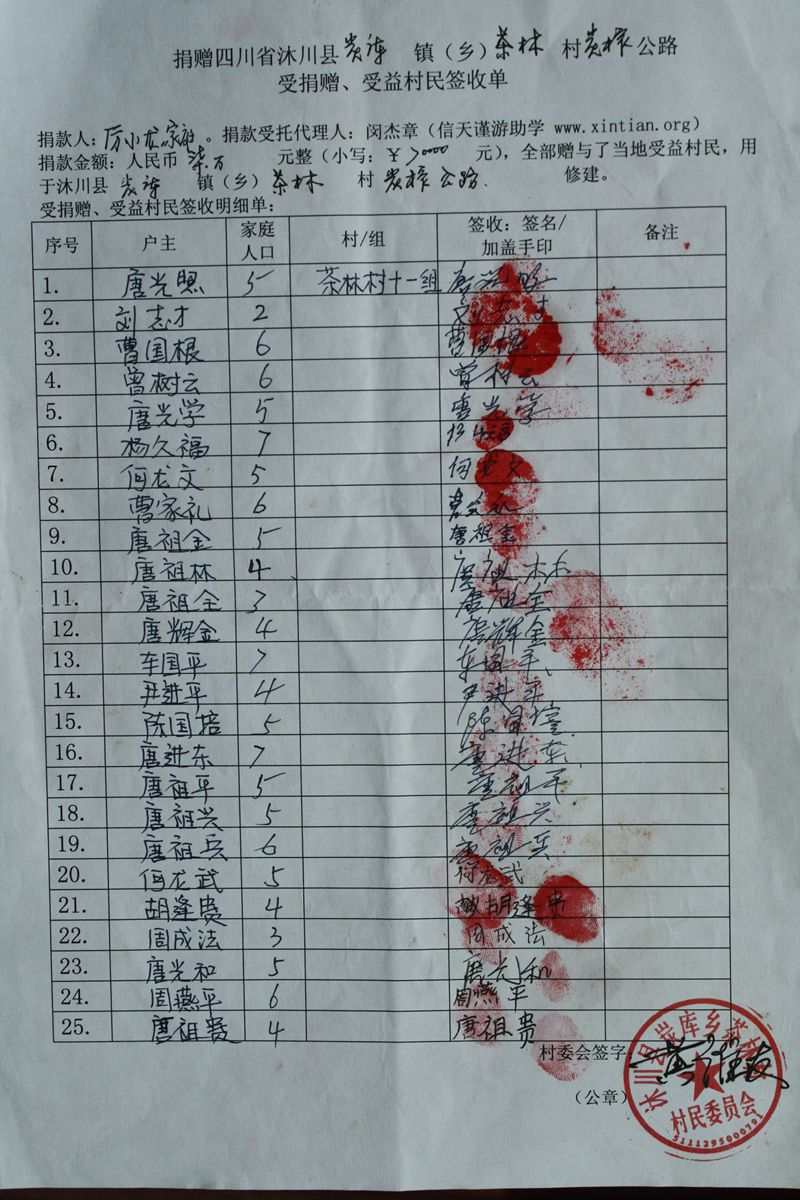 捐赠四川省沐川县 镇（乡）茶林 村 公路
受捐赠、受益村民签收单
捐款人：厉小龙家庭 。捐款受托代理人：闵杰章（信天谨游助学 www.xintian.org）
捐款金额：人民币 柒万 元整（小写：￥70000 元），全部赠与了当地受益村民，用
于沐川县 镇（乡）茶林 村 公路 修建。
受捐赠、受益村民签收明细单：
序号 户主 家庭人口 村/组 签收：签名/加盖手印 备注
1. 唐光照 5 茶林村十一组 唐光照
2. 刘志才 2 刘志才
3. 曹国根 6 曹国根
4. 曾树云 6 曾树云
5. 唐光学 5 唐光学
6. 杨久福 7
7. 何龙文 5 何龙文
8. 曹家礼 6
9. 唐祖金 5 唐祖金
10. 唐祖林 4 唐祖林
11. 唐祖全 3 唐祖全
12. 唐辉金 4 唐辉金
13. 车国平 7 车国平
14. 尹进平 4 尹进平
15. 陈国培 5 陈国培
16. 唐进东 7 唐进东
17. 唐祖平 5 唐祖平
18. 唐祖兴 5 唐祖兴
19. 唐祖兵 6 唐祖兵
20. 何龙武 5 何龙武
21. 胡逢贵 4 胡逢贵
22. 周成法 3 周成法
23. 唐光和 5 唐光和
24. 周燕平 6 周燕平
25. 唐祖贵 4 唐祖贵
村委会签字
（公章）
沐川县炭库乡茶林村
村民委员会
5111295000791